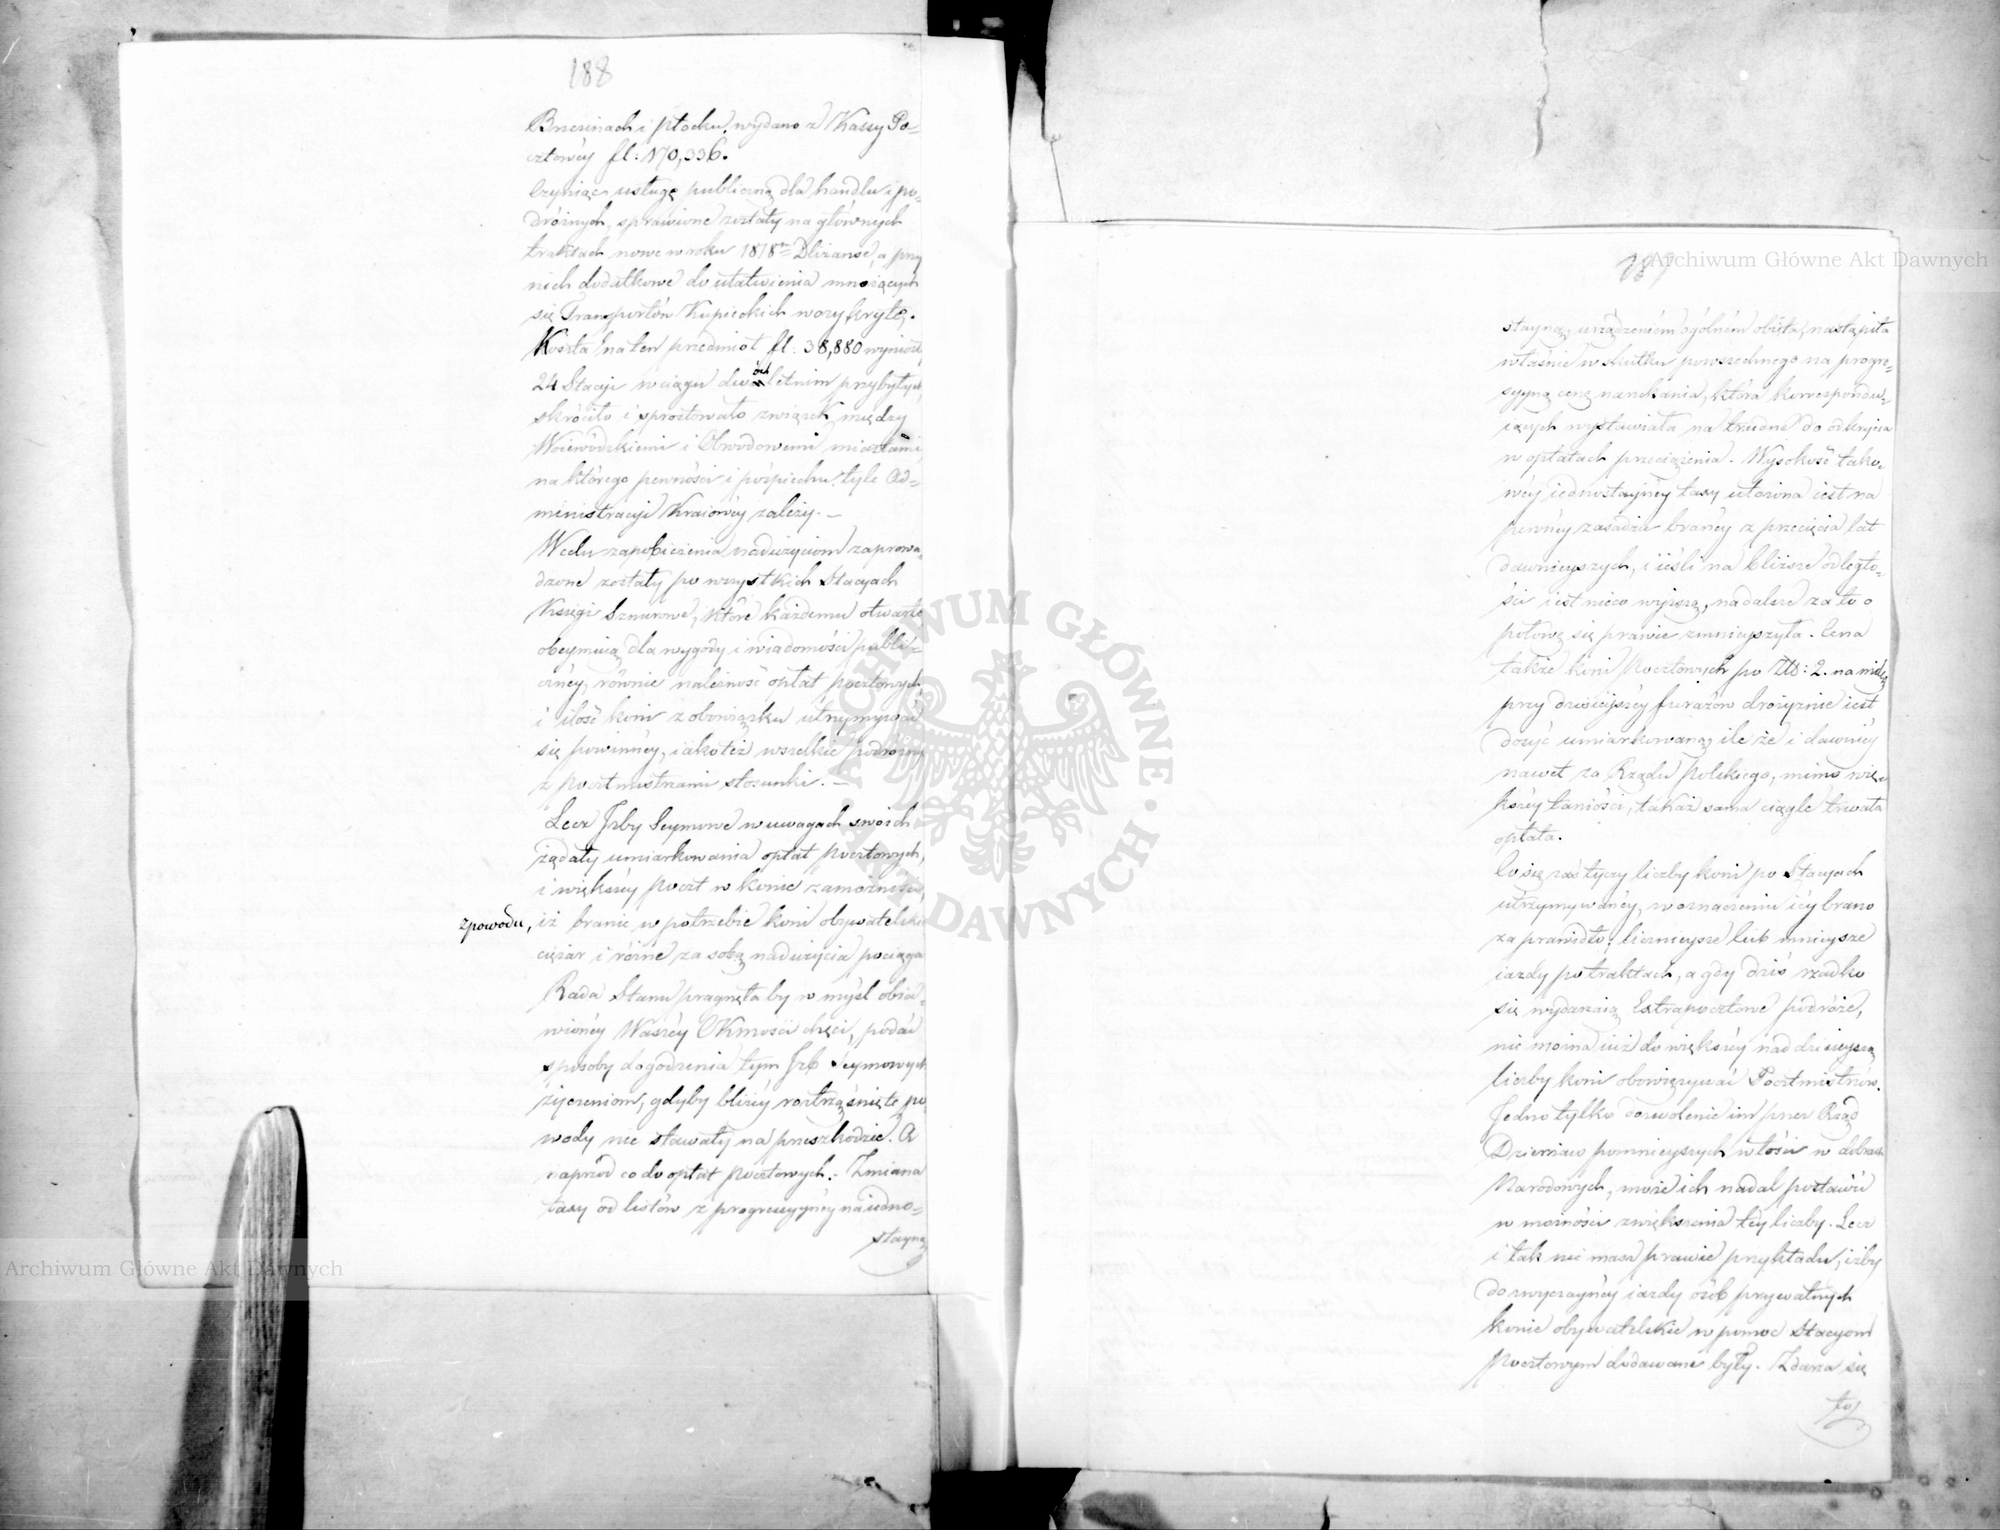 188
Brzezinach i Płocku, wydano z Kassy Po=
cztowéy fl: 170,336.
Czyniąc usługę publiczną dla handlu i po=
dróżnych, sprawione zostały na głównych
traktach nowe w roku 1818m Dliżanse, a przy
nich dodatkowe do ułatwienia mnożących
się Transportów Kupieckich wozy kryte.
Koszta na ten przedmiot fl: 38,880 wyniosły
24 Stacyi w ciągu dwóchletnim przybyłych,
skróciło i sprostowało związek między
Woiewódzkiemi i Obwodowemi miastami,
na którego pewności i pośpiechu, tyle Ad=
ministracyi Kraiowéy zależy. —
W celu zapobieżenia nadużyciom zaprowa=
dzone zostały po wszystkich Stacyach
Księgi Sznurowe, które każdemu otwarte
obeymuią dla wygody i wiadomości publi=
cznéy, równie należność opłat pocztowych
i ilość koni z obowiązku utrzymywać
się powinnéy, iako też wszelkie podróżnych
z pocztmistrzami stosunki. —
Lecz Izby Seymowe w uwagach swoich
żądały umiarkowania opłat pocztowych,
i większéy poczt w konie zamożności,
zpowodu, iż branie w potrzebie koni obywatelskich
ciężar i różne za sobą nadużycia pociąga
Rada Stanu pragnęła by w myśl obia=
wionéy Waszéy CKMości chęci, podać
sposoby dogodzenia tym Izb Seymowych
życzeniom, gdyby bliżéy roztrząśnięte po
wody nie stawały na przeszkodzie. A
naprzód co do opłat pocztowych: Zmiana
taxy od listów z progressyynéy na iedno=
stayną
189
Archiwum Główne Akt Dawnych
stayną, urządzeniem ogólném obięta, nastąpiła
właśnie w skutku powszechnego na progre=
syyną cenę narzekania, która korrespondu=
iących wystawiała na trudne do odkrycia
w opłatach przeciążenia. Wysokość tako=
wéy iednostaynéy taxy ułożona iest na
pewnéy zasadzie branéy z przecięcia lat
dawnieyszych, i ieśli na bliższe odległo=
ści iest nieco wyższą, na dalsze za to o
połowę się prawie zmnieyszyła. Cena
także koni Pocztowych po Złt: 2. na milę
przy dzisieyszéy furażów drożyznie iest
dosyć umiarkowaną, ile że i dawniéy
nawet za Rządu Polskiego, mimo więk=
kszéy taniości, takaż sama ciągle trwała
opłata.
Co się zaś tyczy liczby koni po Stacyach
utrzymywanéy, w oznaczeniu iéy brano
za prawidło: licznieysze lub mnieysze
iazdy po traktach, a gdy dziś rzadko
się wydarzaią Extrapocztowe podróże,
nie można iuż do większéy nad dzisieyszą
liczby koni obowięzywać Pocztmistrzów.
Jedno tylko dozwolenie im przez Rząd
Dzierżaw pomnieyszych włości w dobrach
Narodowych, może ich nadal postawić
w możności zwiększenia téy liczby. Lecz
i tak nie masz prawie przykładu, iżby
do zwyczaynéy iazdy osób prywatnych
konie obywatelskie w pomoc Stacyom
Pocztowym dodawane były. Zdarza się
to
ARCHIWUM GŁÓWNE AKT DAWNYCH
Archiwum Główne Akt Dawnych